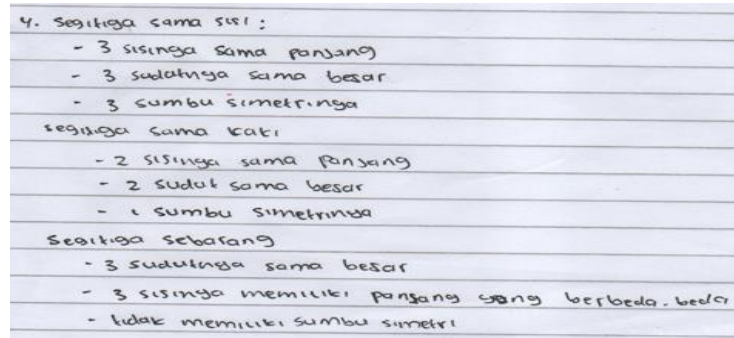 4. Segitiga sama sisi :
- 3 sisinya sama panjang
- 3 sudutnya sama besar
- 3 sumbu simetrinya
segitiga sama kaki
- 2 sisinya sama panjang
- 2 sudut sama besar
- 1 sumbu simetrinya
Segitiga sebarang
- 3 sudutnya sama besar
- 3 sisinya memiliki panjang yang berbeda-beda
- tidak memiliki sumbu simetri